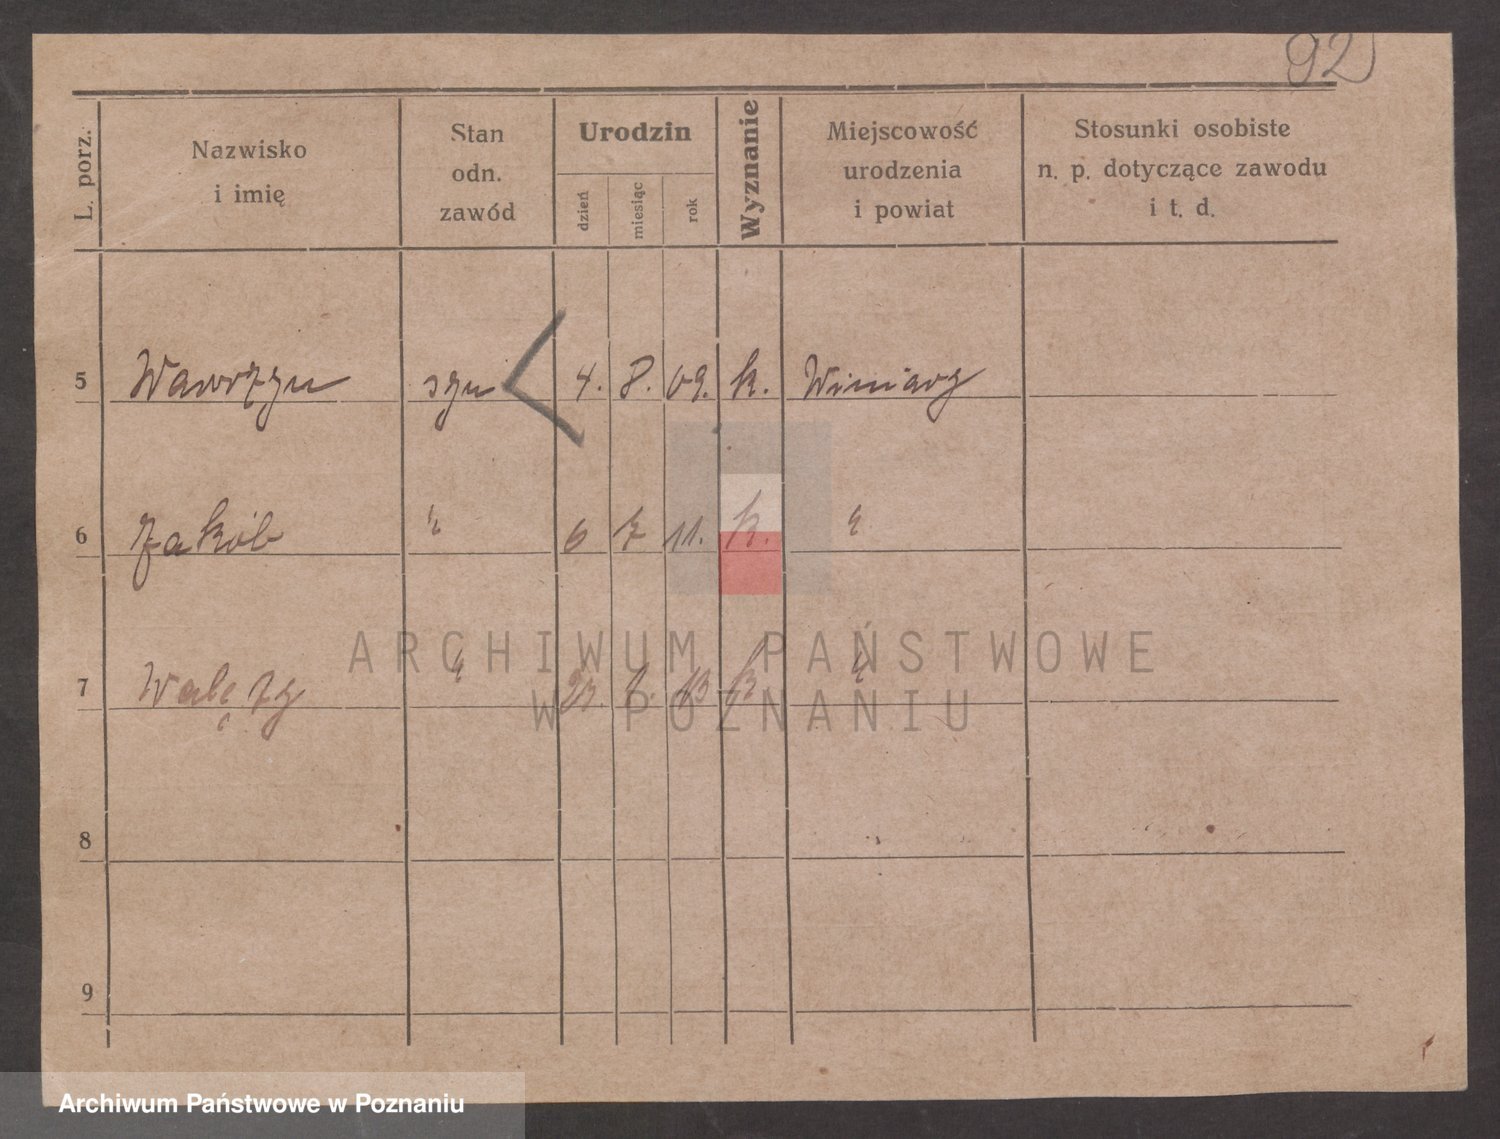 92
L. porz.
Nazwisko
i imię
Stan
odn.
zawód
Urodzin
dzień
miesiąc
rok
Wyznanie
Miejscowość
urodzenia
i powiat
Stosunki osobiste
n. p. dotyczące zawodu
i t. d.
5 Wawrzyn syn 4. 8. 09. k. Winiary
6 Jakób " 6 7 11. k. "
7 " 1. 13 k "
8
9
ARCHIWUM PAŃSTWOWE
W POZNANIU
Archiwum Państwowe w Poznaniu